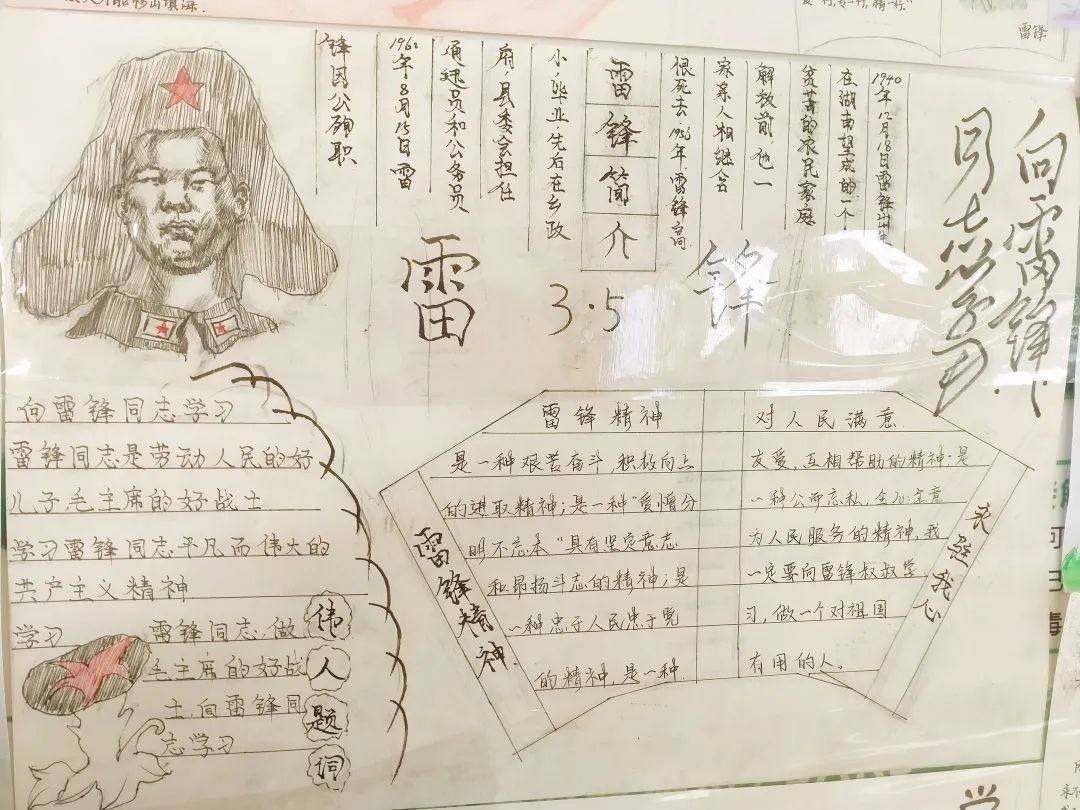 向雷锋
同志学习
1940年12月18日雷锋出生
在湖南望成的一个
贫苦的农民家庭
解放前,他一
家亲人相继含
恨死去,1956年,雷锋高
雷锋简介
小,毕业,先后在乡政
府,县委会担任
通迅员和公务员
1962年·8月15日雷
锋因公殉职
雷 3·5 锋
向雷锋同志学习
雷锋同志是劳动人民的好
儿子,毛主席的好战士
学习雷锋同志平凡而伟大的
共产主义精神
学习 雷锋同志,做
毛主席的好战
士,向雷锋同
志学习
伟人题词
雷锋精神
雷锋精神
是一种艰苦奋斗,积极向上
的进取精神;是一种"爱憎分
明不忘本"具有坚定意志
和昂扬斗志的精神;是
一种忠于人民忠于党
的精神,是一种
对人民满意
友爱,互相帮助的精神;是
一种公而忘私,全心全意
为人民服务的精神,我
一定要向雷锋叔叔学
习,做一个对祖国
有用的人。
永驻我心
雷锋
学